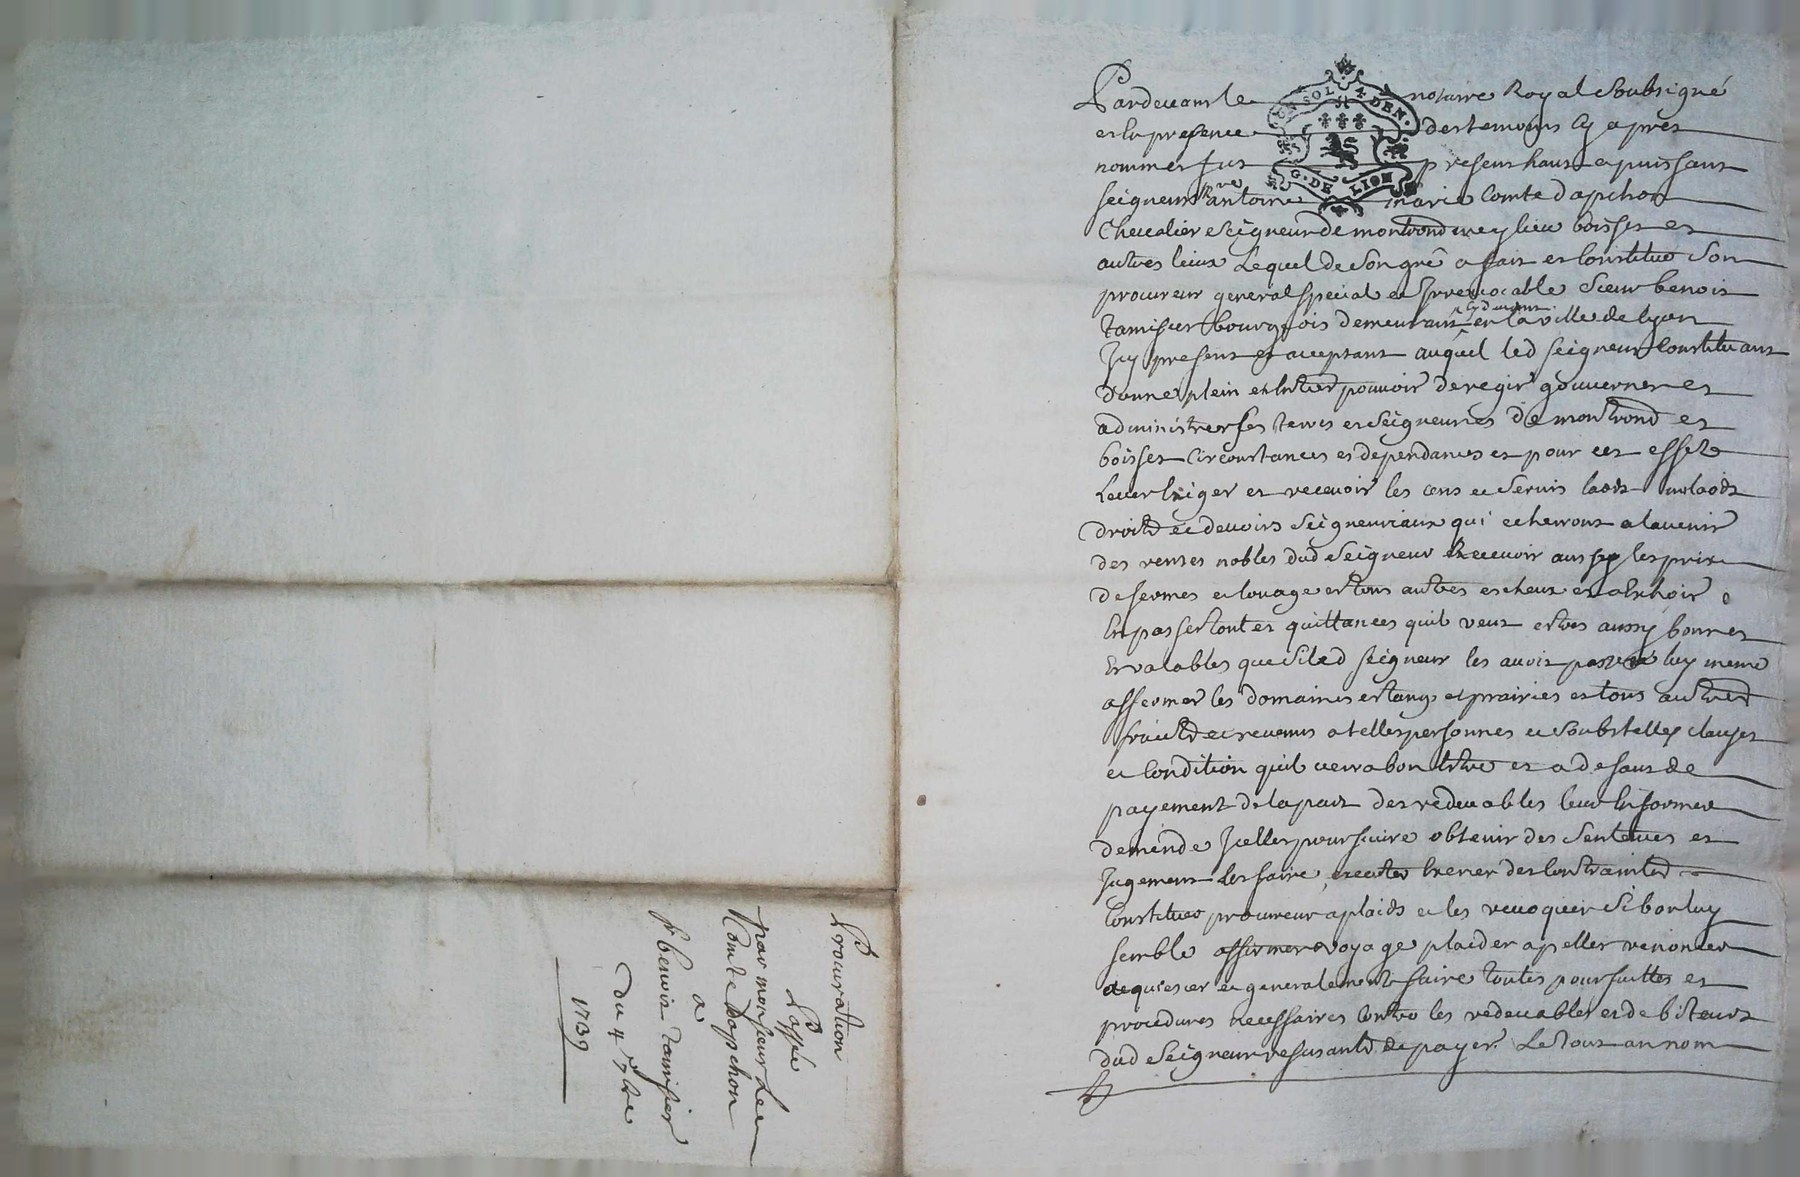 Pardevant le notaire Royal Soubsigné
et en presence des temoins Cy apres
nommes fut present haut et puissant
seigneur mre antoine marie Comte dapchon
Chevalier Seigneur de montrond meylieu boisset et
autres lieux Lequel de Son gré a fait et Constitué Son
procureur general special et Irrevocable Sieur benoit
tamisier bourgeois demeurant cy devant en la ville de lyon
Icy present et acceptant auquel led seigneur Constituant
donne plein et Entier pouvoir de regir gouverner et
administrer ses terres et Seigneuries de montrond et
boisset Circonstances et dependances et pour cet effet
Lever Exiger et recevoir les cens et Servis laods milaods
droits et devoirs Seigneuriaux qui echerront a lavenir
des rentes nobles dud Seigneur Recevoir aussy les prix
de fermes et louage et tous autres escheux et a Echoir
En passer toutes quittances quil veut estres aussy bonnes
Et valables que Si led seigneur les avoit passé luy meme
affermer les domaines estangs et prairies et tous autres
fruicts et revenus a telles personnes et Soubs telles clauses
et Condition quil verra bon Estre et a defaut de
payement de la part des redevables leur En former
demende Icelles poursuivre obtenir des Sentences et
Jugement Les faire executer Exercer des Contraintes
Constituer procureur a plaids et les revoquer Si bon luy
semble affirmer voyage plaider apeller renoncer
acquiescer et generalement faire toutes poursuittes et
procedures necessaires Contre les redevables et debiteurs
dud Seigneur refusants de payer Le tout au nom
Procuration
Passée
par monsieur Le
Comte Dapchon
a
Sr benoit tamisier
du 4 7bre
1739
G. DE LION
SOL 4 DEN.